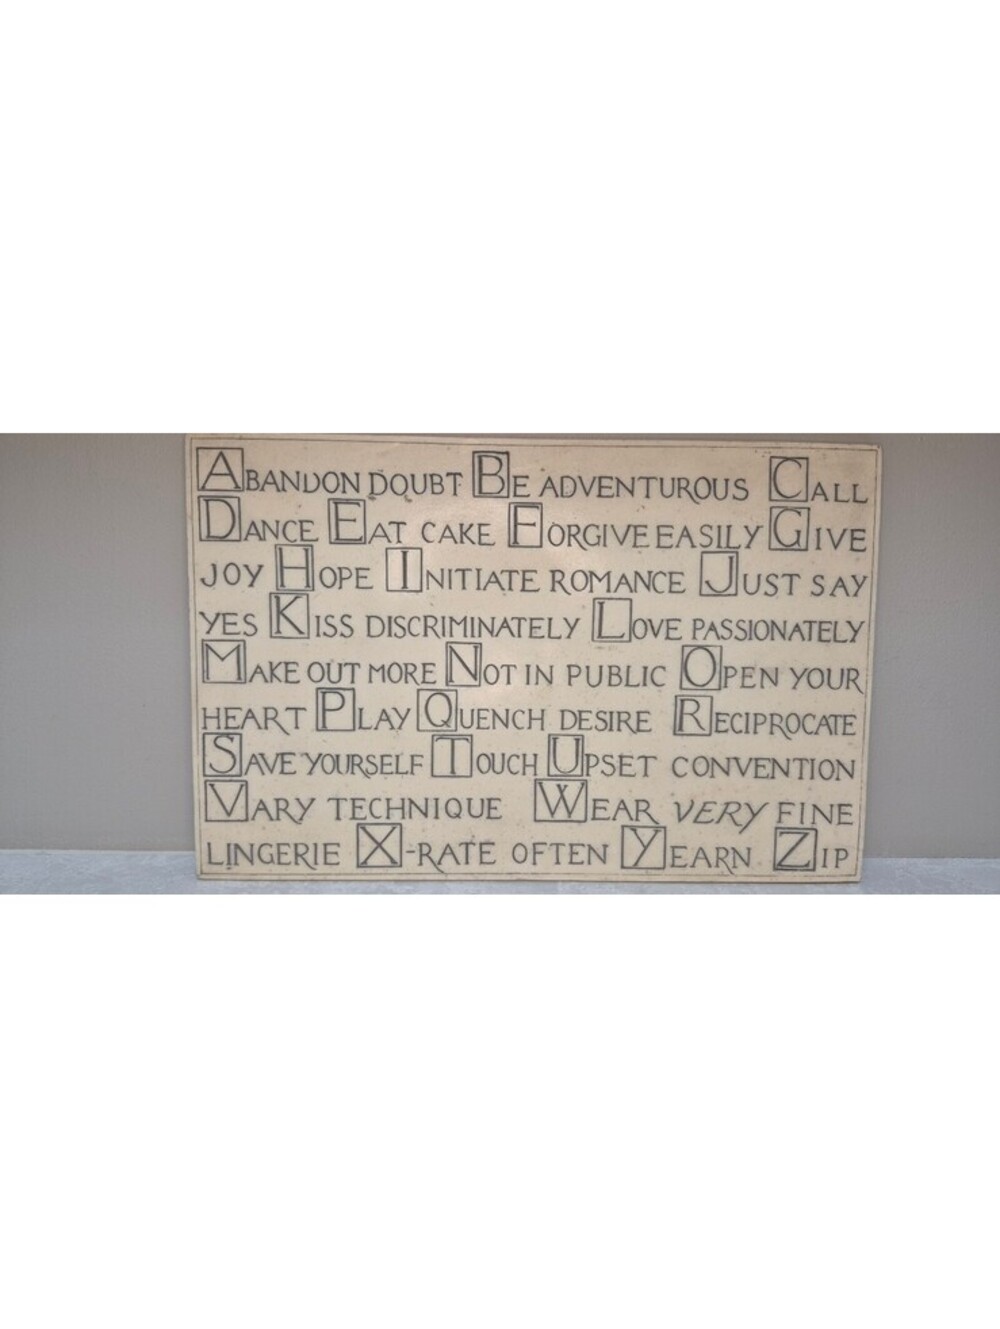 ABANDON DOUBT BE ADVENTUROUS CALL
DANCE EAT CAKE FORGIVE EASILY GIVE
JOY HOPE INITIATE ROMANCE JUST SAY
YES KISS DISCRIMINATELY LOVE PASSIONATELY
MAKE OUT MORE NOT IN PUBLIC OPEN YOUR
HEART PLAY QUENCH DESIRE RECIPROCATE
SAVE YOURSELF TOUCH UPSET CONVENTION
VARY TECHNIQUE WEAR VERY FINE
LINGERIE X-RATE OFTEN YEARN ZIP